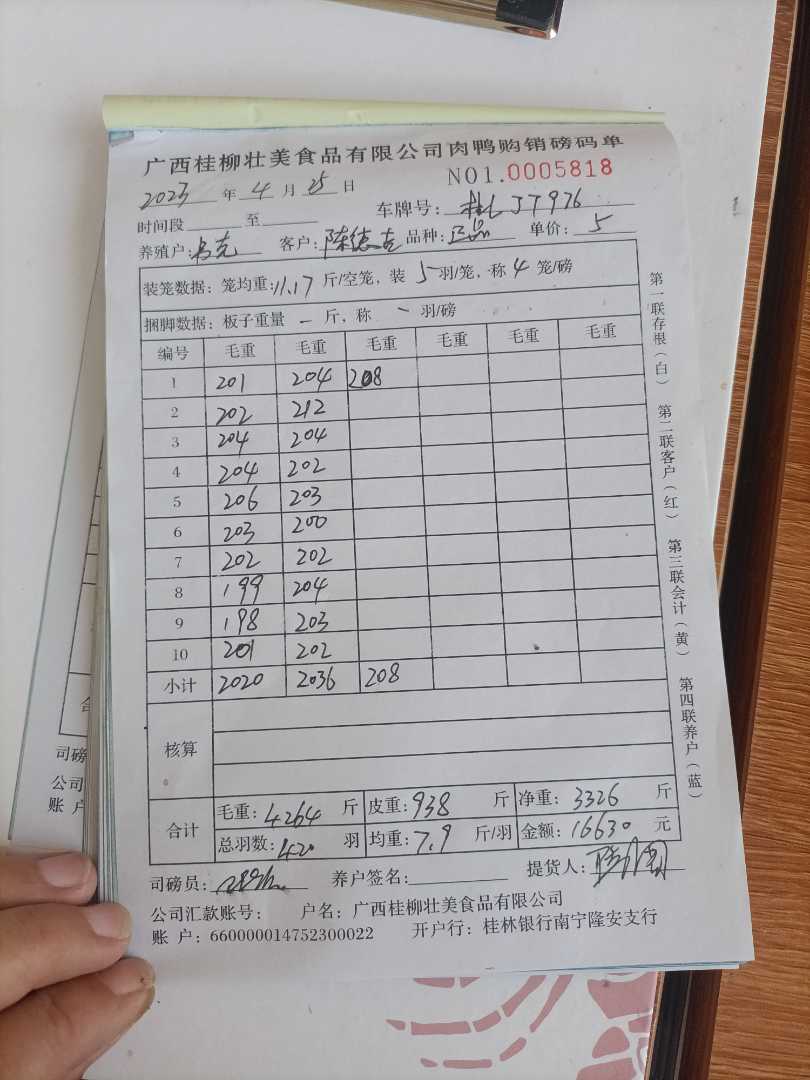 广西桂柳壮美食品有限公司肉鸭购销磅码单
2023 年 4 月 25 日 NO1.0005818
时间段 至 车牌号: J7976
养殖户: 客户: 陈德 品种: 正品 单价: 5
装笼数据: 笼均重: 11.17 斤/空笼, 装 5 羽/笼, 称 4 笼/磅
捆脚数据: 板子重量 一 斤, 称 一 羽/磅
编号 毛重 毛重 毛重 毛重 毛重 毛重
1 201 204 208
2 202 212
3 204 204
4 204 202
5 206 203
6 203 200
7 202 202
8 199 204
9 198 203
10 201 202
小计 2020 2036 208
核算
合计 毛重: 4264 斤 皮重: 938 斤 净重: 3326 斤
总羽数: 420 羽 均重: 7.9 斤/羽 金额: 16630 元
司磅员: 养户签名: 提货人:
公司汇款账号: 户名: 广西桂柳壮美食品有限公司
账 户: 660000014752300022 开户行: 桂林银行南宁隆安支行
第一联存根(白) 第二联客户(红) 第三联会计(黄) 第四联养户(蓝)
合
司磅
公司
账 户